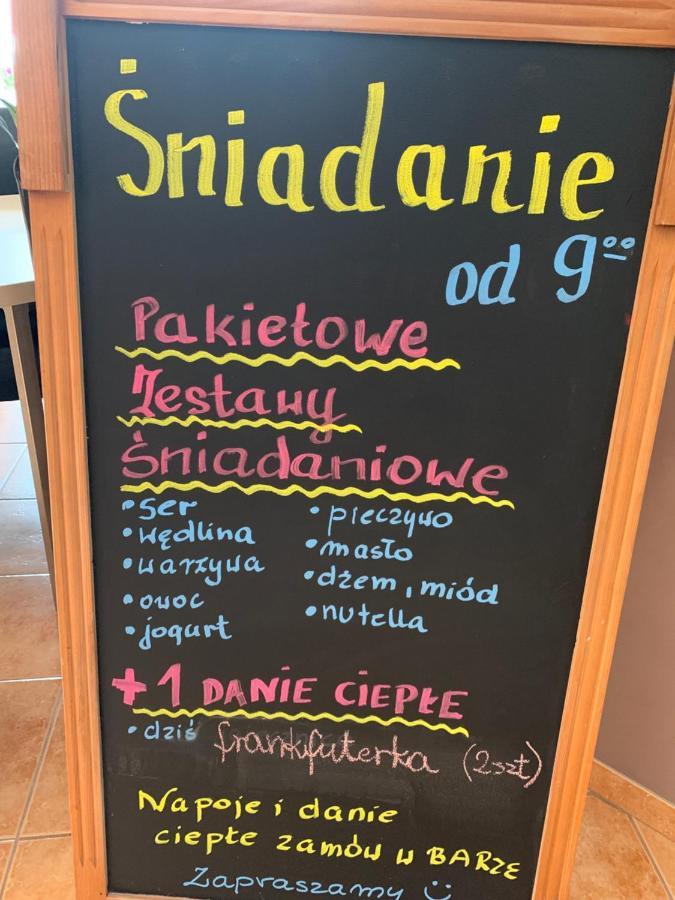 Śniadanie
od 9⁰⁰
Pakietowe
Zestawy
Śniadaniowe
• ser
• wędlina
• warzywa
• owoc
• jogurt
• pieczywo
• masło
• dżem, miód
• nutella
+ 1 DANIE CIEPŁE
• dziś frankfuterka (2szt)
Napoje i danie
ciepłe zamów w BARZE
Zapraszamy ☺